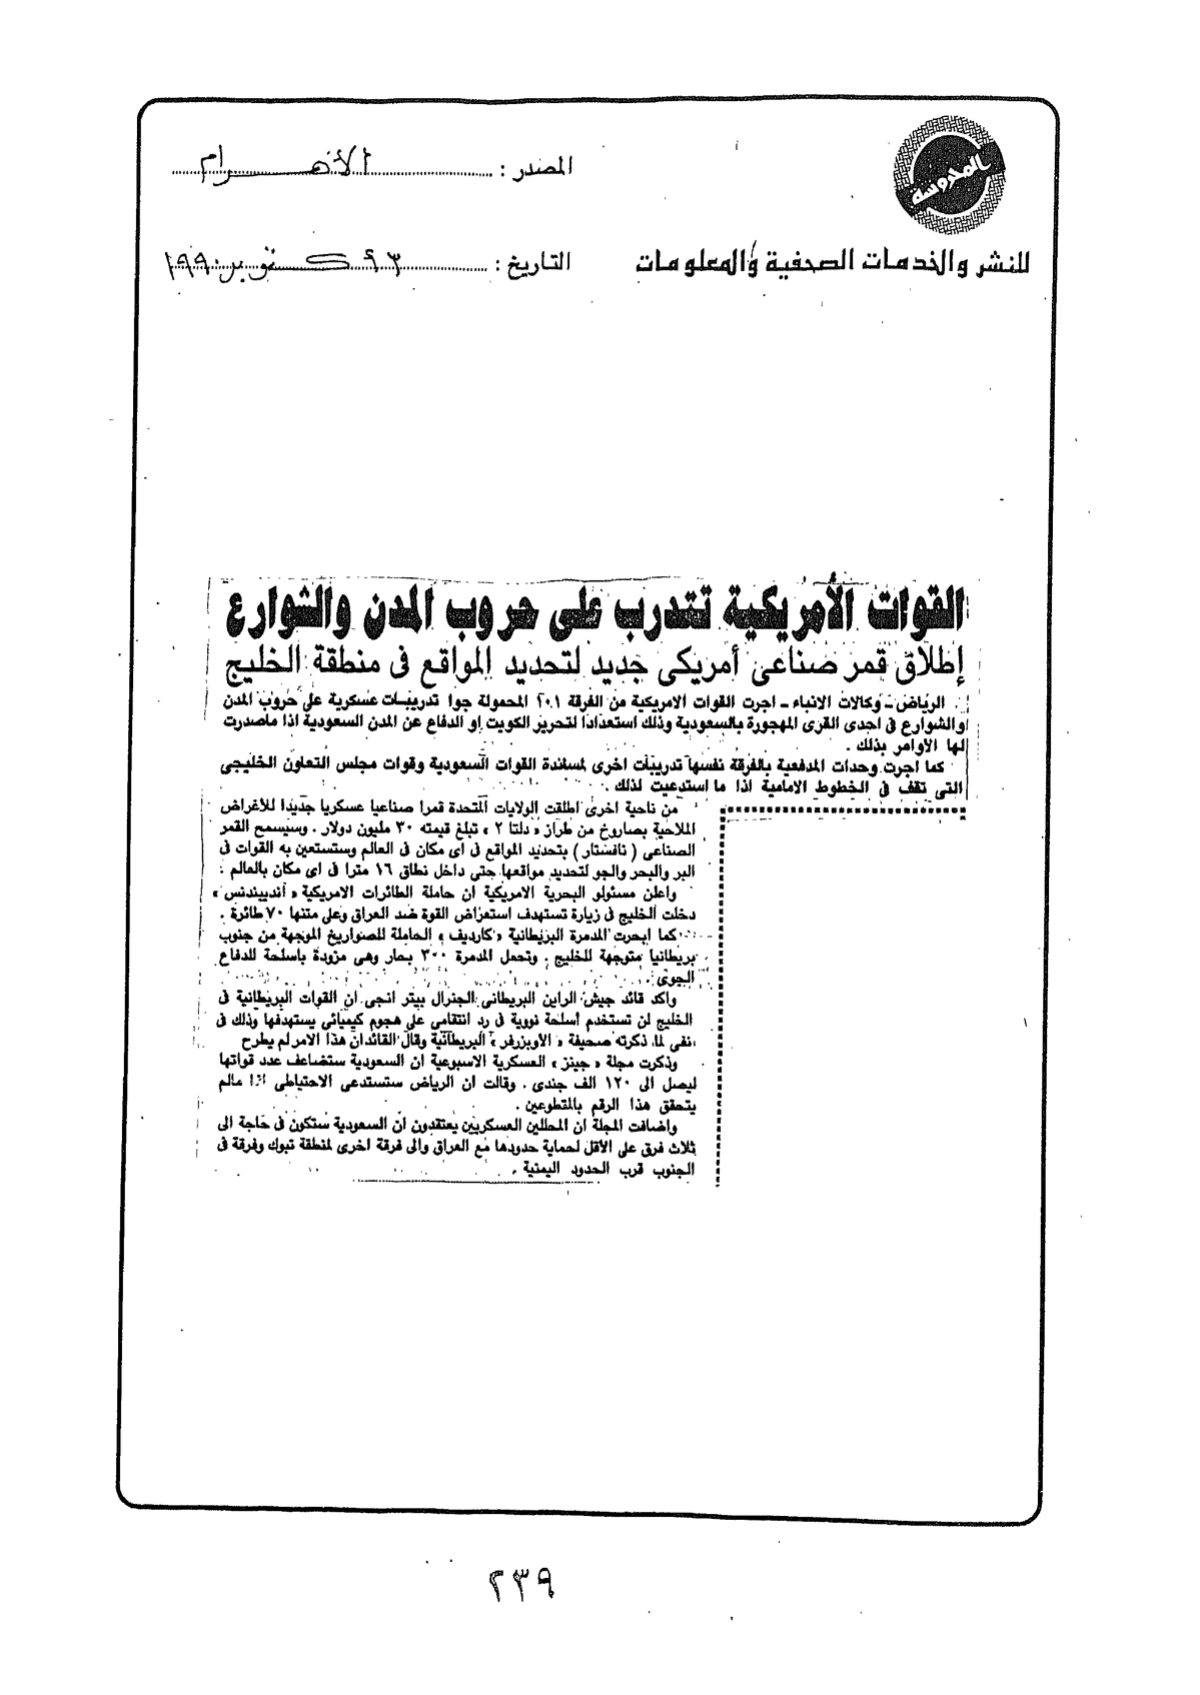 المحروسة
المصدر : الأهرام
للنشر والخدمات الصحفية والمعلومات
التاريخ : ٣ أكتوبر ١٩٩٠
القوات الأمريكية تتدرب على حروب المدن والشوارع
إطلاق قمر صناعى أمريكى جديد لتحديد المواقع فى منطقة الخليج
الرياض - وكالات الانباء - اجرت القوات الامريكية من الفرقة ١٠١ المحمولة جوا تدريبات عسكرية على حروب المدن
والشوارع فى احدى القرى المهجورة بالسعودية وذلك استعدادا لتحرير الكويت او الدفاع عن المدن السعودية اذا ماصدرت
لها الأوامر بذلك .
كما اجرت وحدات المدفعية بالفرقة نفسها تدريبات اخرى لمساندة القوات السعودية وقوات مجلس التعاون الخليجى
التى تقف فى الخطوط الامامية اذا ما استدعيت لذلك .
من ناحية اخرى اطلقت الولايات المتحدة قمرا صناعيا عسكريا جديدا للأغراض
الملاحية بصاروخ من طراز « دلتا ٢ » تبلغ قيمته ٣٠ مليون دولار . وسيسمح القمر
الصناعى ( نافستار ) بتحديد المواقع فى اى مكان فى العالم وستستعين به القوات فى
البر والبحر والجو لتحديد مواقعها حتى داخل نطاق ١٦ مترا فى اى مكان بالعالم .
واعلن مسئولو البحرية الامريكية ان حاملة الطائرات الامريكية « أندبيندنس »
دخلت الخليج فى زيارة تستهدف استعراض القوة ضد العراق وعلى متنها ٧٠ طائرة .
كما ابحرت المدمرة البريطانية « كارديف » الحاملة للصواريخ الموجهة من جنوب
بريطانيا متوجهة للخليج . وتحمل المدمرة ٣٠٠ بحار وهى مزودة باسلحة للدفاع
الجوى .
واكد قائد جيش الراين البريطانى الجنرال بيتر انجى ان القوات البريطانية فى
الخليج لن تستخدم أسلحة نووية فى رد انتقامى على هجوم كيميائى يستهدفها وذلك فى
نفى لما ذكرته صحيفة « الأوبزرفر » البريطانية وقال القائدان هذا الامر لم يطرح
وذكرت مجلة « جينز » العسكرية الاسبوعية ان السعودية ستضاعف عدد قواتها
ليصل الى ١٢٠ الف جندى . وقالت ان الرياض ستستدعى الاحتياطى اذا مالم
يتحقق هذا الرقم بالمتطوعين .
واضافت المجلة ان المحللين العسكريين يعتقدون أن السعودية ستكون فى حاجة الى
ثلاث فرق على الأقل لحماية حدودها مع العراق والى فرقة اخرى لمنطقة تبوك وفرقة فى
الجنوب قرب الحدود اليمنية .
٢٣٩